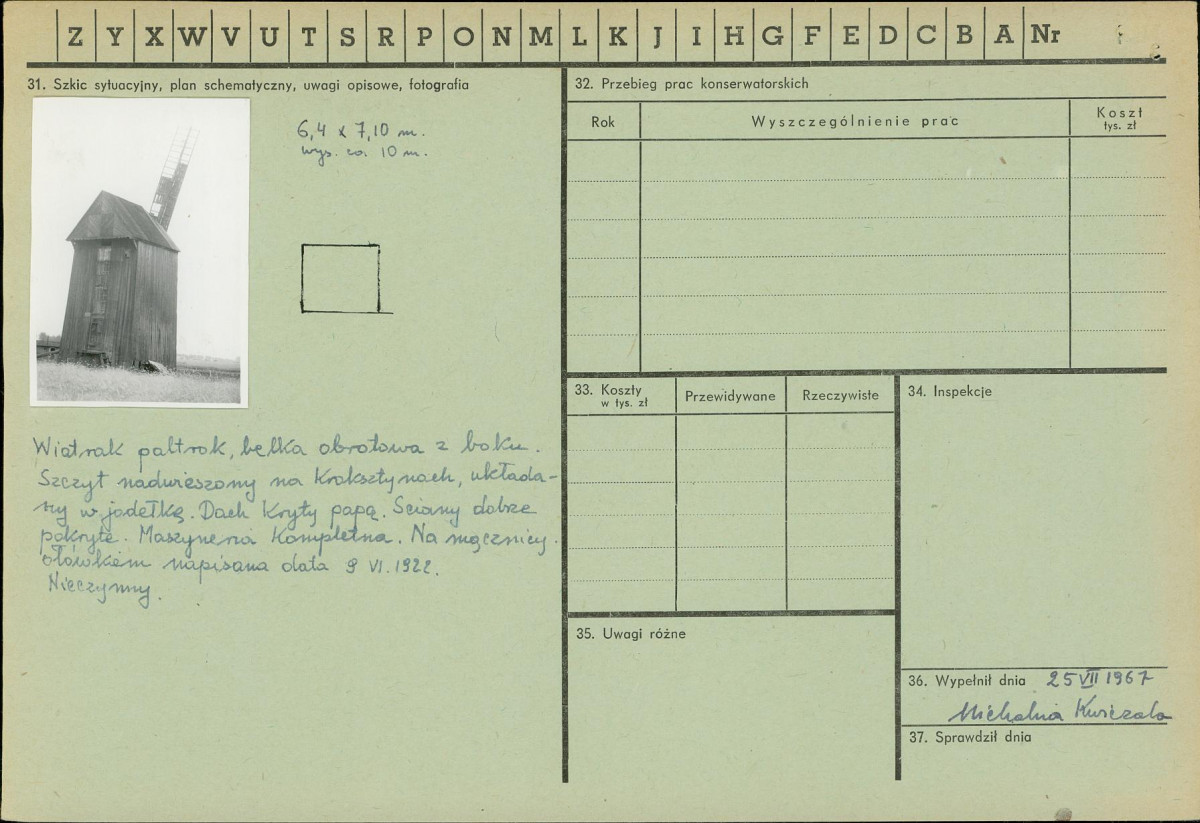 Z Y X W V U T S R P O N M L K J I H G F E D C B A Nr
31. Szkic sytuacyjny, plan schematyczny, uwagi opisowe, fotografia
6,4 x 7,10 m.
wys. ca. 10 m.
Wiatrak paltrok, belka obrotowa z boku.
Szczyt nadwieszony na kroksztynach, układa-
ny w jodełkę. Dach kryty papą. Ściany dobrze
pokryte. Maszyneria kompletna. Na mącznicy
ołówkiem napisana data 9 VI. 1922.
Nieczynny.
32. Przebieg prac konserwatorskich
Rok
Wyszczególnienie prac
Koszt
tys. zł
33. Koszty
w tys. zł
Przewidywane
Rzeczywiste
34. Inspekcje
35. Uwagi różne
36. Wypełnił dnia 25 VII 1967
37. Sprawdził dnia